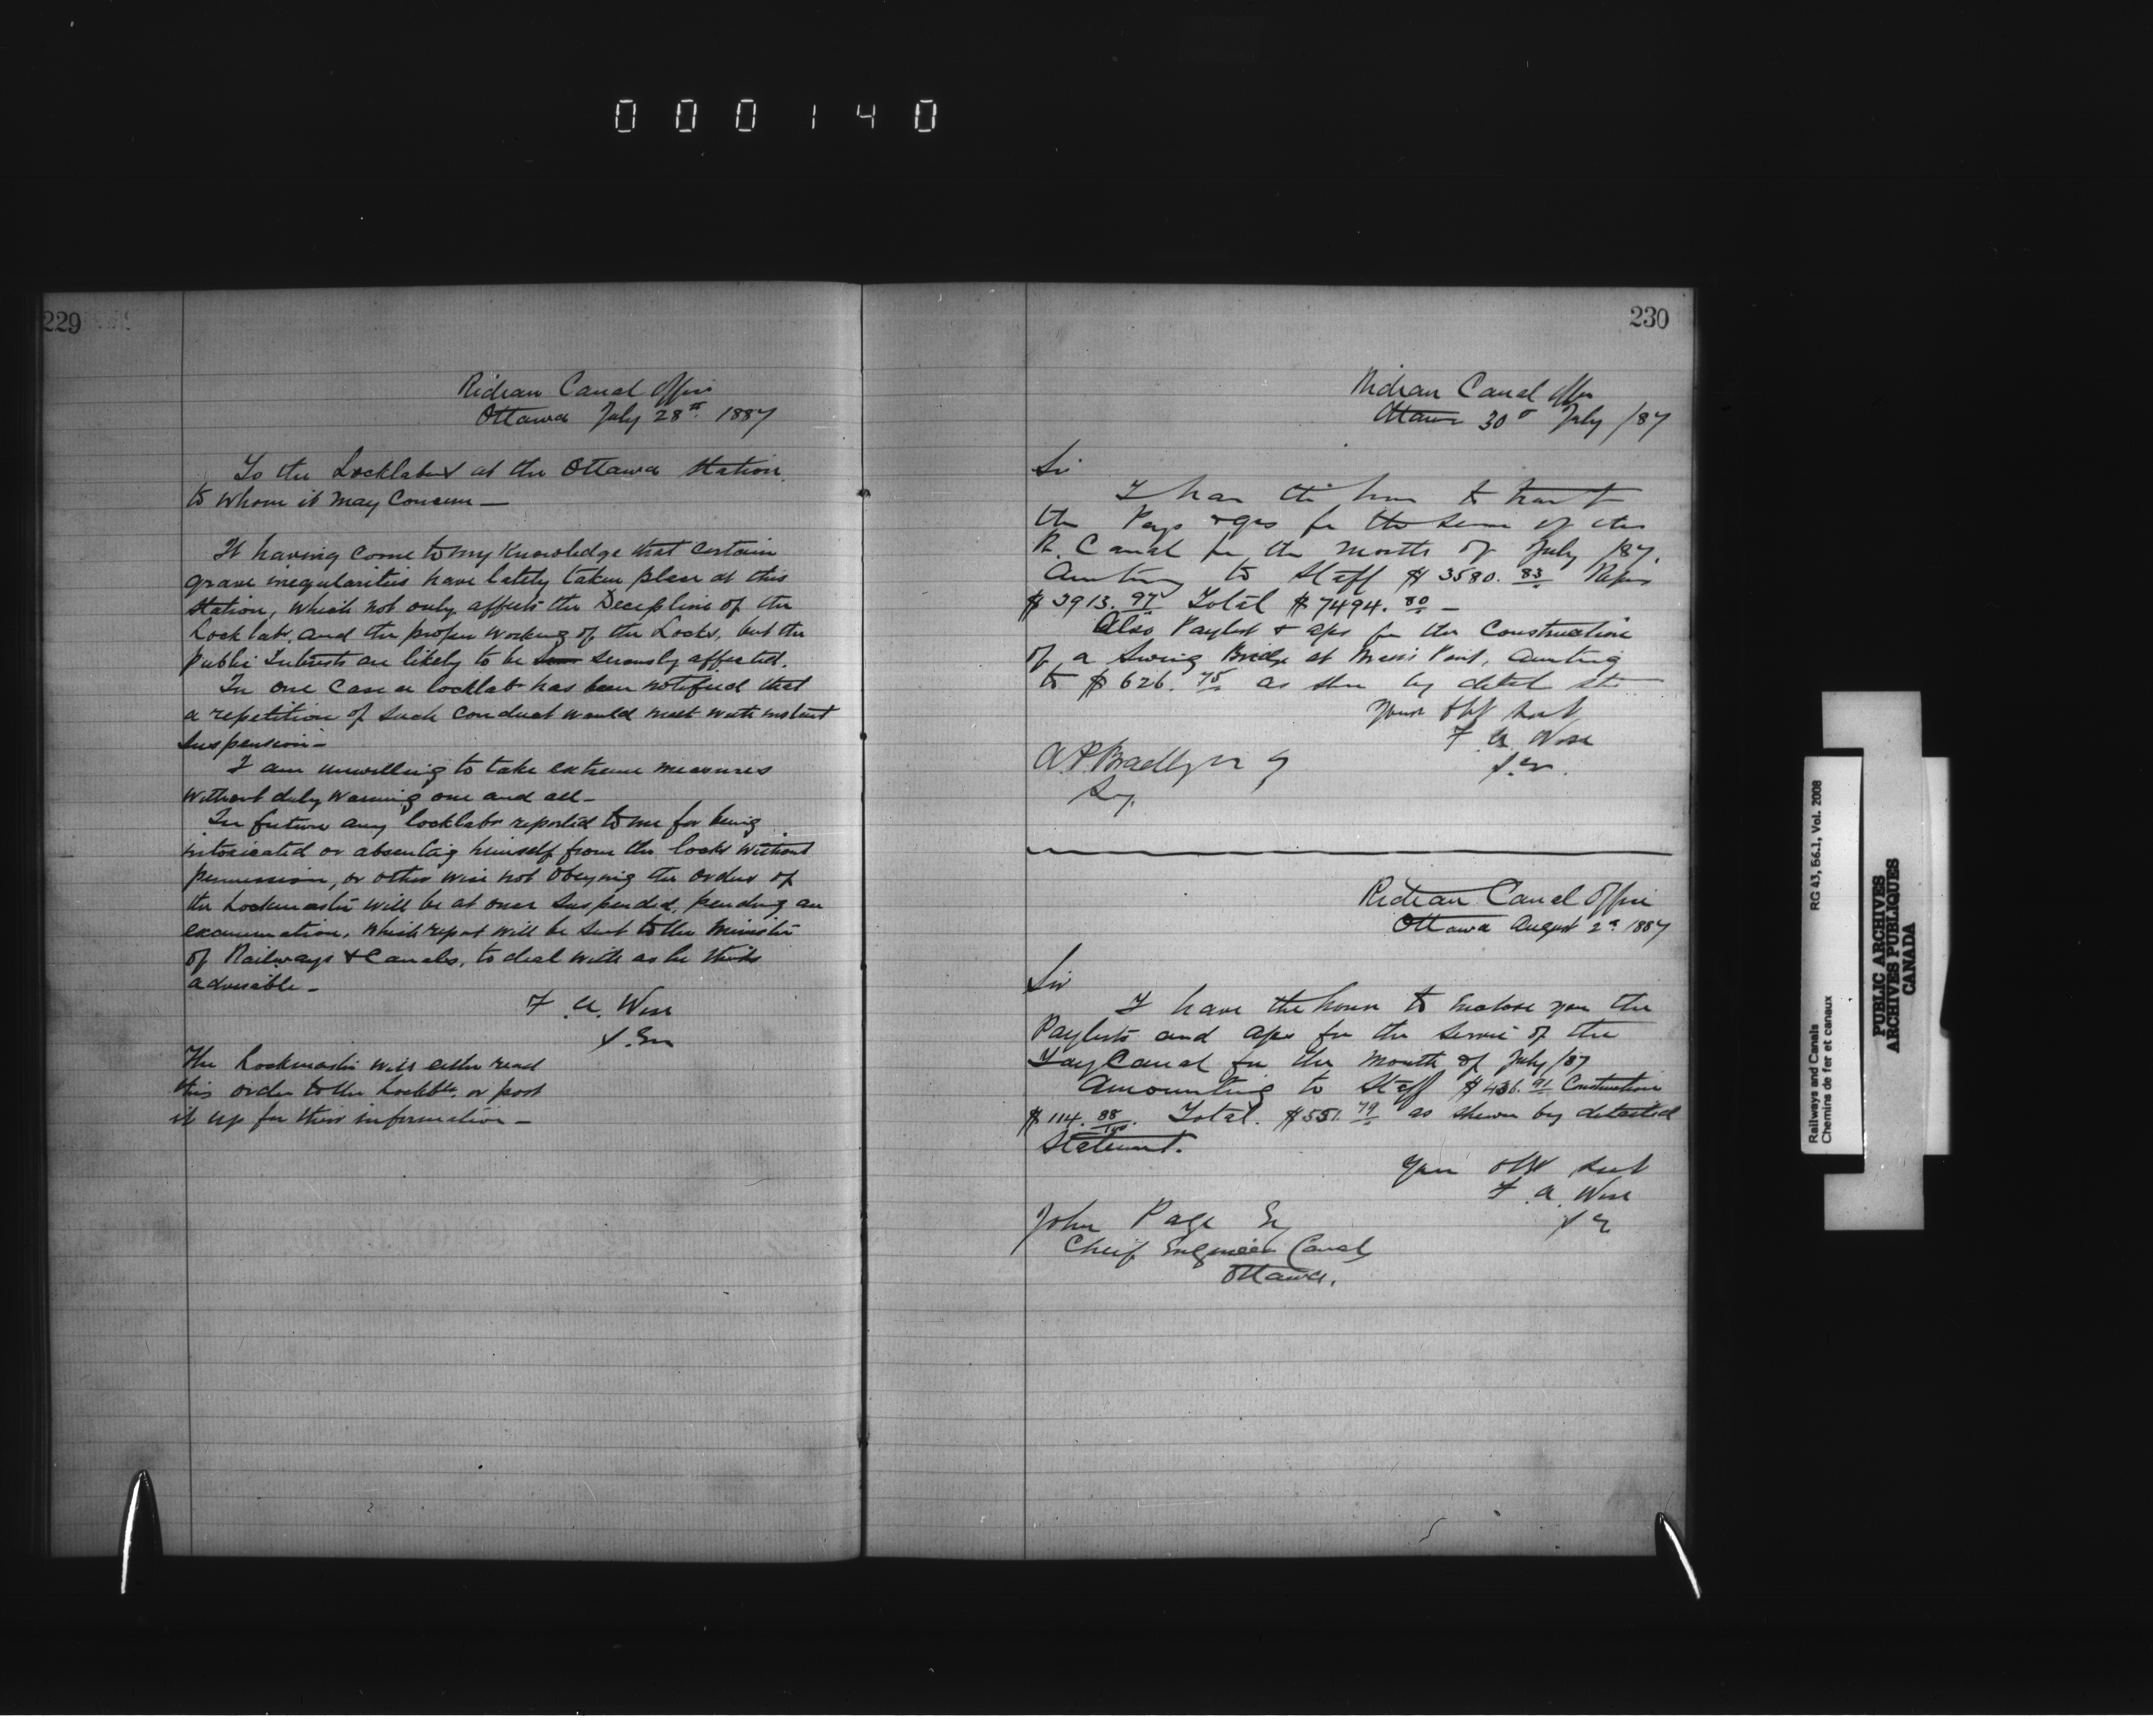 000140
229
Rideau Canal Office
Ottawa July 28th 1887
To the Locklabrs at the Ottawa Station
to whom it may concern—
It having come to my knowledge that certain
grave iregularities have lately taken place at this
Station, which not only affects the Decipline of the
Locklabrs. and the proper working of the Locks, but the
public Interests are likely to be seriously affected.
In one case a locklabr has been notified that
a repetition of such conduct would meet with instant
suspension—
I am unwilling to take extreme measures
without duly warning one and all—
In future any locklabr reported to me for being
intoxicated or absenting himself from the locks without
permission, or other wise not obeying the orders of
the Lockmaster will be at once suspended, pending an
examination, which report will be sent to the Minister
of Railways & Canals, to deal with as he thinks
advisable—
F. A. Wise
S. En
The Lockmaster will either read
this order to the Locklbrs. or post
it up for their information—
230
Rideau Canal Office
Ottawa 30th July /87
Sir
I have the honr to
the Pays for the of the
R. Canal for the month of July /87.
Amting to Staff $3580.83 Repairs
$3913.97 Total $7494.80 —
Also Paylist & aps for the Construction
of a Swing Bridge at Point, Amting
to $626.75 as shn by detld
Your Obt Sert
F. A. Wise
S. En.
A. P. Bradley
Sey.
Rideau Canal Office
Ottawa August 2nd 1887
Sir
I have the honor to Enclose you the
Paylists and aps for the Service of the
Tay Canal for the month of July /87
Amounting to Staff $436.91 Construction
$114.88/100. Total. $551.79 as shewn by detailed
Statement.
Your Obt Sert
F. A. Wise
S E
John Page Eq
Cheif Engineer Canals
Ottawa.
Railways and Canals
Chemins de fer et canaux
RG 43, B6.1, Vol. 2008
PUBLIC ARCHIVES
ARCHIVES PUBLIQUES
CANADA